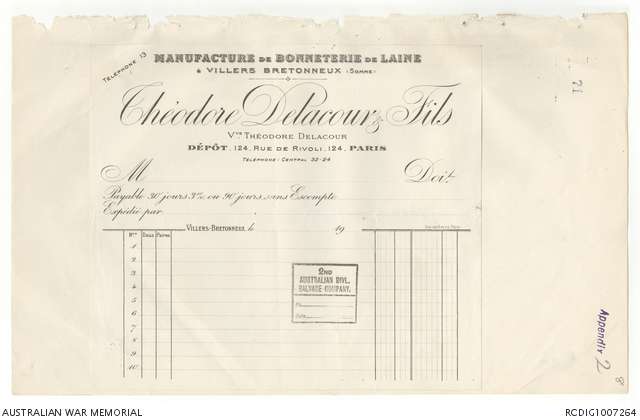 TÉLÉPHONE 13
MANUFACTURE DE BONNETERIE DE LAINE
À VILLERS BRETONNEUX (SOMME)
Théodore Delacour & Fils
Vve THÉODORE DELACOUR
DÉPÔT, 124, RUE DE RIVOLI, 124, PARIS
TÉLÉPHONE: CENTRAL 32-24
M Doit
Payable 30 jours 3% ou 90 jours sans Escompte
Expédié par
VILLERS-BRETONNEUX, le 19
Nos Douz Paires
1
2
3
4
5
6
7
8
9
10
2ND
AUSTRALIAN DIVL.
SALVAGE COMPANY.
No.
Date
71
Appendix 2
8
AUSTRALIAN WAR MEMORIAL RCDIG1007264